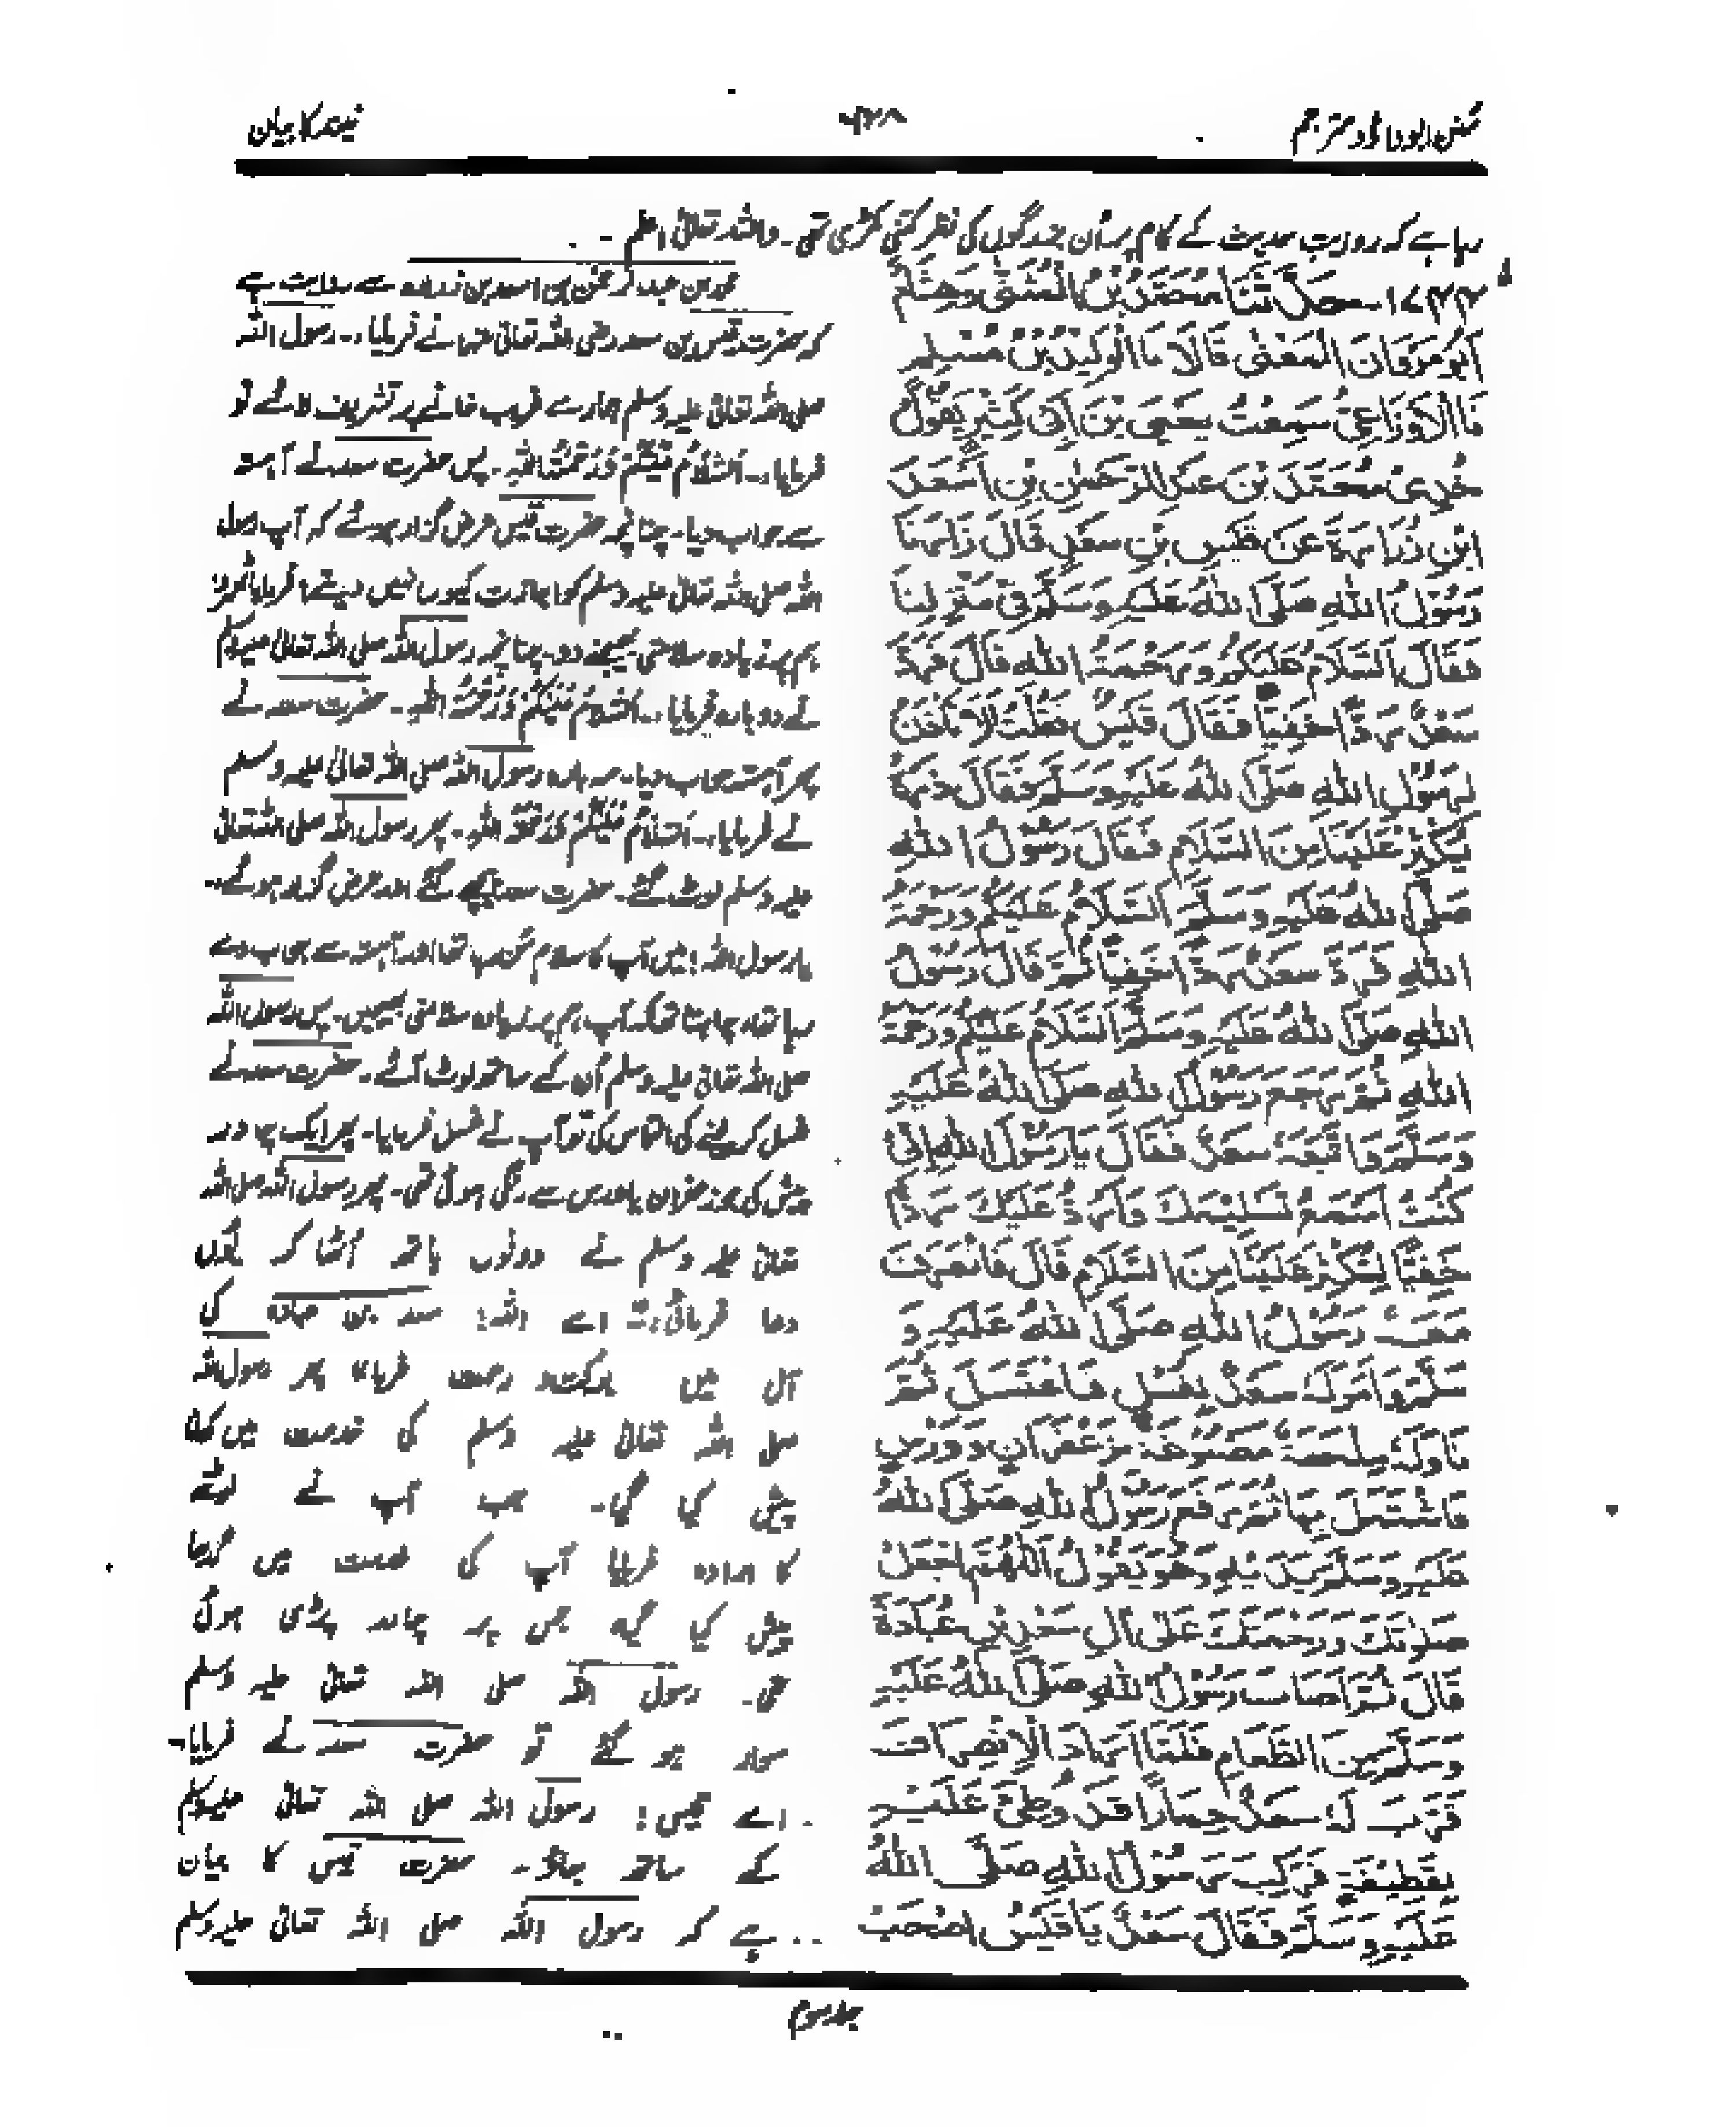 سنن ابوداؤد مترجم
۶۳۸
نیند کا بیان
رہا ہے کہ روایتِ حدیث کے کام پر ان بزرگوں کی نظر کتنی کڑی تھی۔ واللہ تعالیٰ اعلم۔
۱۷۴۴۔ حَدَّثَنَا مُحَمَّدُ بْنُ الْمُثَنّٰى وَهِشَامٌ
اَبُوْ مَرْوَانَ الْمَعْنٰى قَالَا نَا الْوَلِيْدُ بْنُ مُسْلِمٍ
نَا الْاَوْزَاعِيُّ سَمِعْتُ يَحْيَى بْنَ اَبِيْ كَثِيْرٍ يَقُوْلُ
مُحَمَّدُ بْنُ عَبْدِ الرَّحْمٰنِ بْنِ اَسْعَدَ
ابْنِ زُرَارَةَ عَنْ قَيْسِ بْنِ سَعْدٍ قَالَ زَارَنَا
رَسُوْلُ اللهِ صَلَّى اللهُ عَلَيْهِ وَسَلَّمَ فِيْ مَنْزِلِنَا
فَقَالَ السَّلَامُ عَلَيْكُمْ وَرَحْمَةُ اللهِ قَالَ فَرَدَّ
سَعْدٌ رَدًّا خَفِيًّا فَقَالَ قَيْسٌ فَقُلْتُ اَلَا تَأْذَنُ
لِرَسُوْلِ اللهِ صَلَّى اللهُ عَلَيْهِ وَسَلَّمَ فَقَالَ ذَرْهُ
يُكْثِرُ عَلَيْنَا مِنَ السَّلَامِ فَقَالَ رَسُوْلُ اللهِ
صَلَّى اللهُ عَلَيْهِ وَسَلَّمَ السَّلَامُ عَلَيْكُمْ وَرَحْمَةُ
اللهِ فَرَدَّ سَعْدٌ رَدًّا خَفِيًّا ثُمَّ قَالَ رَسُوْلُ
اللهِ صَلَّى اللهُ عَلَيْهِ وَسَلَّمَ السَّلَامُ عَلَيْكُمْ وَرَحْمَةُ
اللهِ ثُمَّ رَجَعَ رَسُوْلُ اللهِ صَلَّى اللهُ عَلَيْهِ
وَسَلَّمَ وَاتَّبَعَهُ سَعْدٌ فَقَالَ يَا رَسُوْلَ اللهِ اِنِّيْ
كُنْتُ اَسْمَعُ تَسْلِيْمَكَ وَاَرُدُّ عَلَيْكَ رَدًّا
خَفِيًّا لِتُكْثِرَ عَلَيْنَا مِنَ السَّلَامِ قَالَ فَانْصَرَفَ
مَعَهُ رَسُوْلُ اللهِ صَلَّى اللهُ عَلَيْهِ وَ
سَلَّمَ وَاَمَرَ لَهُ سَعْدٌ بِغُسْلٍ فَاغْتَسَلَ ثُمَّ
نَاوَلَهُ مِلْحَفَةً مَصْبُوْغَةً بِزَعْفَرَانٍ وَوَرْسٍ
فَاشْتَمَلَ بِهَا ثُمَّ رَفَعَ رَسُوْلُ اللهِ صَلَّى اللهُ
عَلَيْهِ وَسَلَّمَ يَدَيْهِ وَهُوَ يَقُوْلُ اَللّٰهُمَّ اجْعَلْ
صَلَوٰتِكَ وَرَحْمَتَكَ عَلٰى اٰلِ سَعْدِ بْنِ عُبَادَةَ
قَالَ ثُمَّ اَصَابَ رَسُوْلُ اللهِ صَلَّى اللهُ عَلَيْهِ
وَسَلَّمَ مِنَ الطَّعَامِ فَلَمَّا اَرَادَ الْاِنْصِرَافَ
قَرَّبَ لَهُ سَعْدٌ حِمَارًا قَدْ وَطَّئَ عَلَيْهِ
بِقَطِيْفَةٍ فَرَكِبَ رَسُوْلُ اللهِ صَلَّى اللهُ
عَلَيْهِ وَسَلَّمَ فَقَالَ سَعْدٌ يَا قَيْسُ اصْحَبْ
محمد بن عبدالرحمٰن بن اسعد بن زرارہ سے روایت ہے
کہ حضرت قیس بن سعد رضی اللہ تعالیٰ عنہما نے فرمایا:۔ رسول اللہ
صلی اللہ تعالیٰ علیہ وسلم ہمارے غریب خانے پر تشریف لائے تو
فرمایا:۔ اَلسَّلَامُ عَلَيْكُمْ وَرَحْمَةُ اللهِ۔ پس حضرت سعد نے آہستہ
سے جواب دیا۔ چنانچہ حضرت قیس عرض گزار ہوئے کہ آپ رسول
اللہ صلی اللہ تعالیٰ علیہ وسلم کو اجازت کیوں نہیں دیتے؟ فرمایا
ہم پر زیادہ سلامتی بھیجنے دو۔ چنانچہ رسول اللہ صلی اللہ تعالیٰ علیہ وسلم
نے دوبارہ فرمایا:۔ اَلسَّلَامُ عَلَيْكُمْ وَرَحْمَةُ اللهِ۔ حضرت سعد نے
پھر آہستہ جواب دیا۔ سہ بارہ رسول اللہ صلی اللہ تعالیٰ علیہ وسلم
نے فرمایا:۔ اَلسَّلَامُ عَلَيْكُمْ وَرَحْمَةُ اللهِ۔ پھر رسول اللہ صلی اللہ تعالیٰ
علیہ وسلم لوٹ گئے۔ حضرت سعد پیچھے گئے اور عرض گزار ہوئے:۔
یا رسول اللہ! میں آپ کا سلام سُن رہا تھا اور آہستہ سے جواب دے
رہا تھا، چاہتا تھا کہ آپ ہم پر زیادہ سلامتی بھیجیں۔ پس رسول اللہ
صلی اللہ تعالیٰ علیہ وسلم اُن کے ساتھ لوٹ آئے۔ حضرت سعد نے
غسل کر لینے کی التماس کی تو آپ نے غسل فرمایا۔ پھر ایک چادر
پیش کی جو زعفران یا ورس سے رنگی ہوئی تھی۔ پھر رسول اللہ صلی اللہ
تعالیٰ علیہ وسلم نے دونوں ہاتھ اُٹھا کر یُوں
دعا فرمائی:۔ اے اللہ! سعد بن عبادہ کی
آل میں برکت اور رحمت فرما۔ پھر رسول اللہ
صلی اللہ تعالیٰ علیہ وسلم کی خدمت میں کھانا
پیش کیا گیا۔ جب آپ نے لوٹنے
کا ارادہ فرمایا آپ کی خدمت میں گدھا
پیش کیا گیا جس پر چادر پڑی ہوئی
تھی۔ رسول اللہ صلی اللہ تعالیٰ علیہ وسلم
سوار ہو گئے تو حضرت سعد نے فرمایا:۔
اے قیس! رسول اللہ صلی اللہ تعالیٰ علیہ وسلم
کے ساتھ جاؤ۔ حضرت قیس کا بیان
ہے کہ رسول اللہ صلی اللہ تعالیٰ علیہ وسلم
جلد سوم